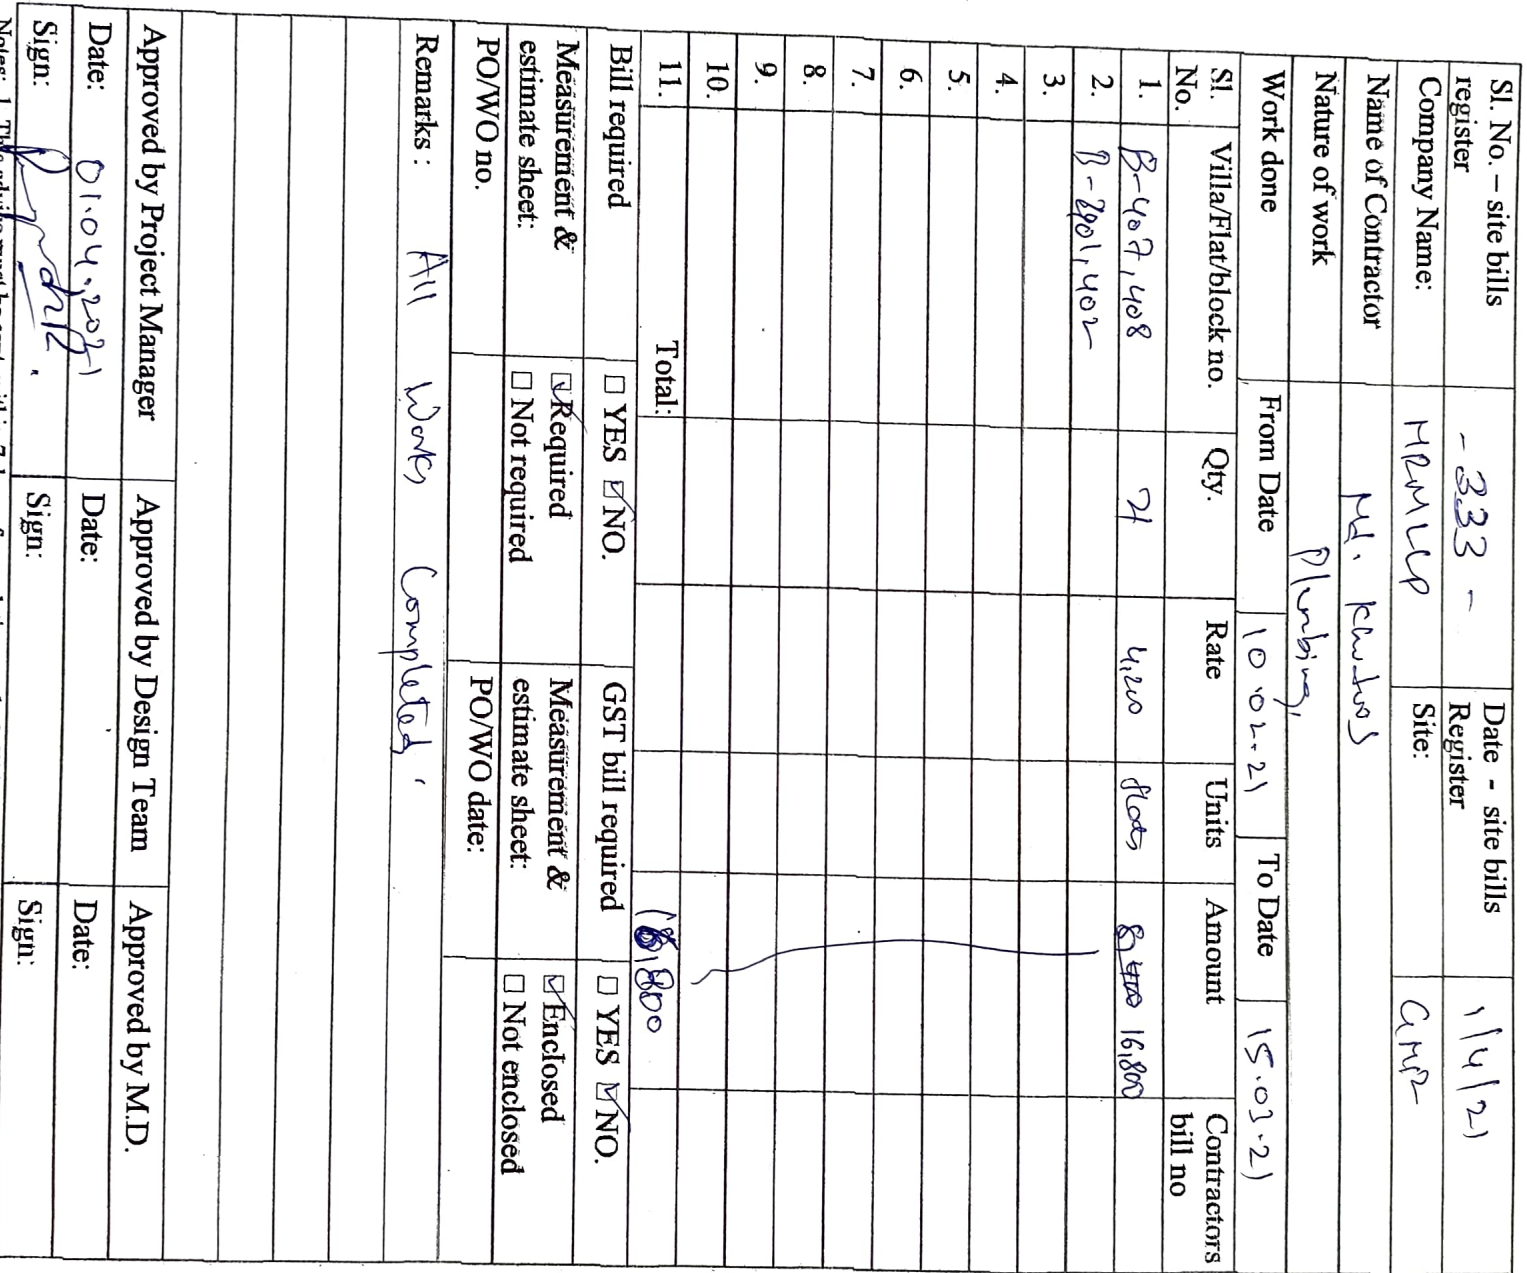 Sl. No. – site bills register - 333 - Date - site bills Register 1/4/21
Company Name: MRMLLP Site: GMR
Name of Contractor Md.
Nature of work Plumbing,
Work done From Date 10.02.21 To Date 15.03.21
Sl. No. Villa/Flat/block no. Qty. Rate Units Amount Contractors bill no
1. B-407,408 4 4,200 flats 8,400 16,800
2. 402
3.
4.
5.
6.
7.
8.
9.
10.
11. Total: 16,800
Bill required □ YES ☑ NO. GST bill required □ YES ☑ NO.
Measurement & estimate sheet: ☑ Required □ Not required Measurement & estimate sheet: ☑ Enclosed □ Not enclosed
PO/WO no. PO/WO date:
Remarks : All Works Completed.
Approved by Project Manager Approved by Design Team Approved by M.D.
Date: 01.04.2021 Date: Date:
Sign: Sign: Sign: